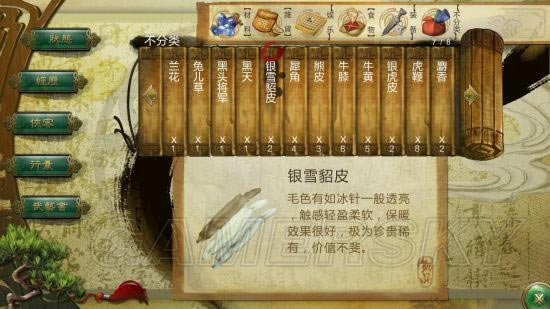 狀態
經歷
俠客
行囊
【材料】
【娱乐】
【食物】
【装备】
【不分类】
不分类
7/8
兰花 x1
兔儿草 x1
黑头将军 x1
黑天 x1
银雪貂皮 x2
犀角 x4
熊皮 x3
牛膝 x8
牛黄 x5
银虎皮 x2
虎鞭 x8
麝香 x2
银雪貂皮
毛色有如冰针一般透亮
，触感轻盈柔软，保暖
效果很好，极为珍贵稀
有，价值不斐。
GAMERSKY